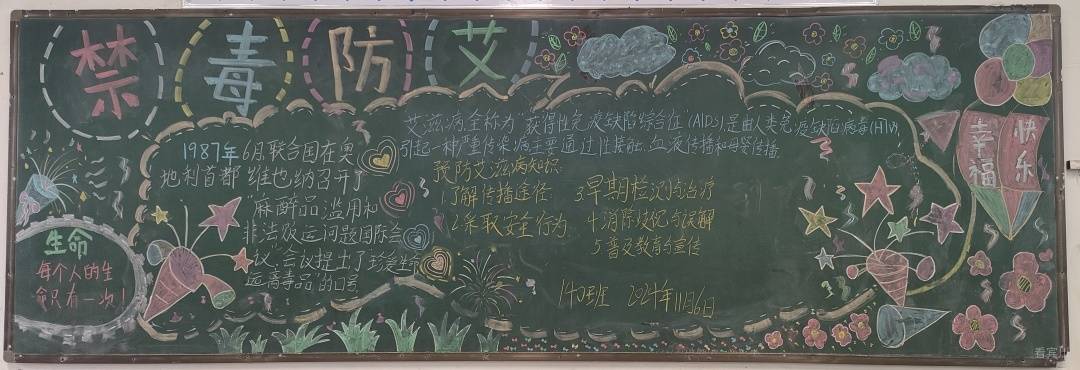 禁毒防艾
1987年6月,联合国在奥
地利首都维也纳召开了
"麻醉品滥用和
非法贩运问题国际会
议,会议提出了"珍爱生命
远离毒品"的口号
生命
每个人的生
命只有一次!
艾滋病,全称为"获得性免疫缺陷综合征"(AIDS),是由人类免疫缺陷病毒(HIV)
引起一种严重传染病主要通过性接触、血液传播和母婴传播
预防艾滋病知识:
1.了解传播途径
2.采取安全行为
3.早期检测与治疗
4.消除歧视与误解
5.普及教育与宣传
140班 2024年11月6日
快乐
幸福
看宾川